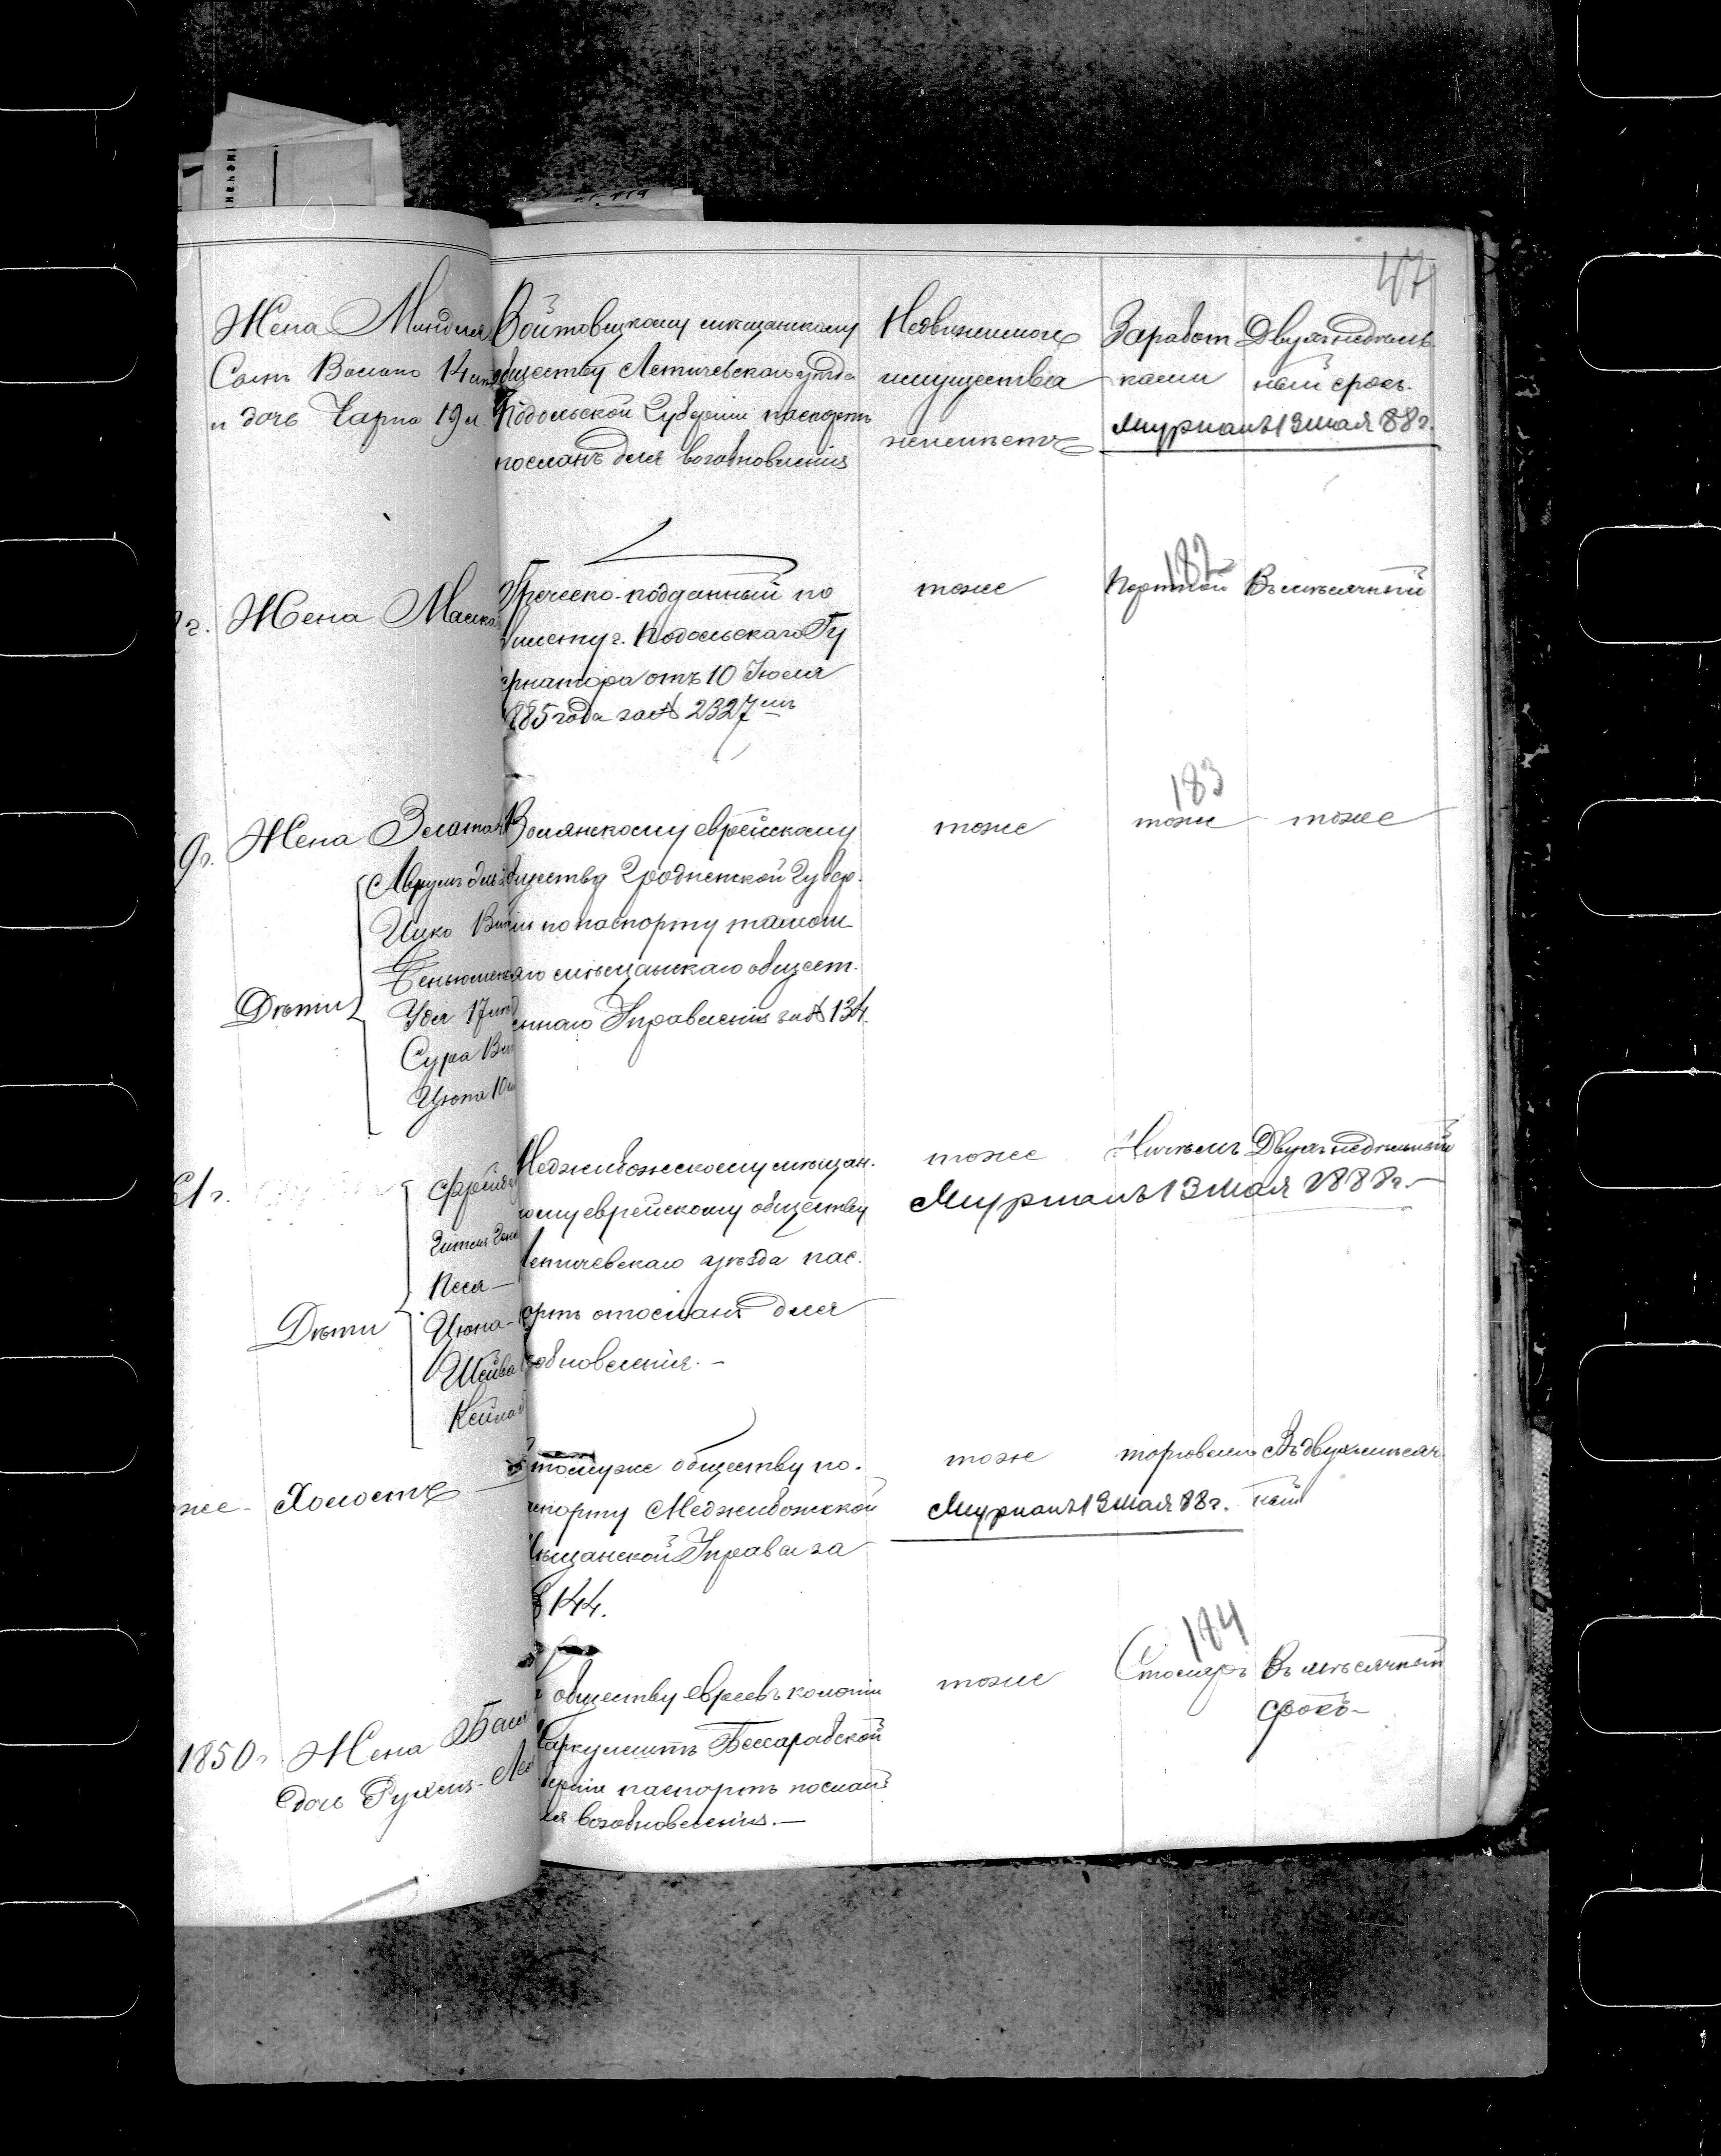 47
Жена Миндля
Сынъ Волько 14 лѣтъ
и дочь Чарна 19 л.
Войтовецкому мѣщанскому
обществу Летичевского уѣзда
Подольской Губерніи паспортъ
посланъ для возобновленія
Недвижимого
имущества
неимѣетъ
Заработ
ками
Двухнедѣль
ный срокъ.
Мурманъ 13 мая 88 г.
г. Жена Малка
Греческо-подданный по
билету г. Подольскаго Гу
бернатора отъ 10 Іюля
1885 года за № 2327мъ
тоже
182
Портной
Вмѣсячный
9 г. Жена Злата
Дѣти
Аврумъ
Ицко
Беньюминъ
Удя 17
Сура
Цюпа 10
Волянскому еврейскому
обществу Гродненской Губер.
ніи по паспорту тамош
няго мѣщанскаго общест.
веннаго Управленія за № 134.
тоже
183
тоже
тоже
1 г.
Дѣти
Фрейда
Гитель
Песя —
Цюпа —
Шейва
Кейла
Меджибожскому мѣщан.
скому еврейскому обществу
Летичевскаго уѣзда пас.
портъ отосланъ для
возобновленія. —
тоже
Ничѣмъ
Двухнедѣльный
Мурманъ 13 мая 1888 г. —
тоже - Холостъ
томуже обществу по.
паспорту Меджибожской
Мѣщанской Управы за
№ 144.
тоже
торговлею
Въдвухмѣсяч
ный
Мурманъ 13 мая 88 г.
1850 г. Жена Бася
дочь Рухель
обществу евреевъ колоніи
Маркулешть Бессарабской
Губерніи паспортъ посланъ
для возобновленія. —
тоже
184
Столяръ
Вмѣсячный
срокъ —